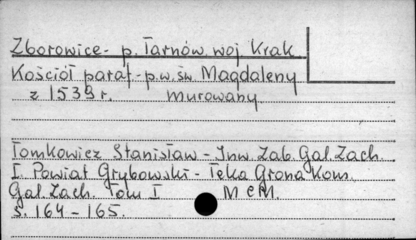 Zborowice - p. Tarnów woj Krak
Kościół paraf - p.w. św Magdaleny
z 1539 r. murowany
Tomkowicz Stanisław - Inw. Zab. Gal. Zach.
I. Powiat Grybowski - Teka Grona Kom.
Gal. Zach. Tom I M C M.
s. 164 - 165.